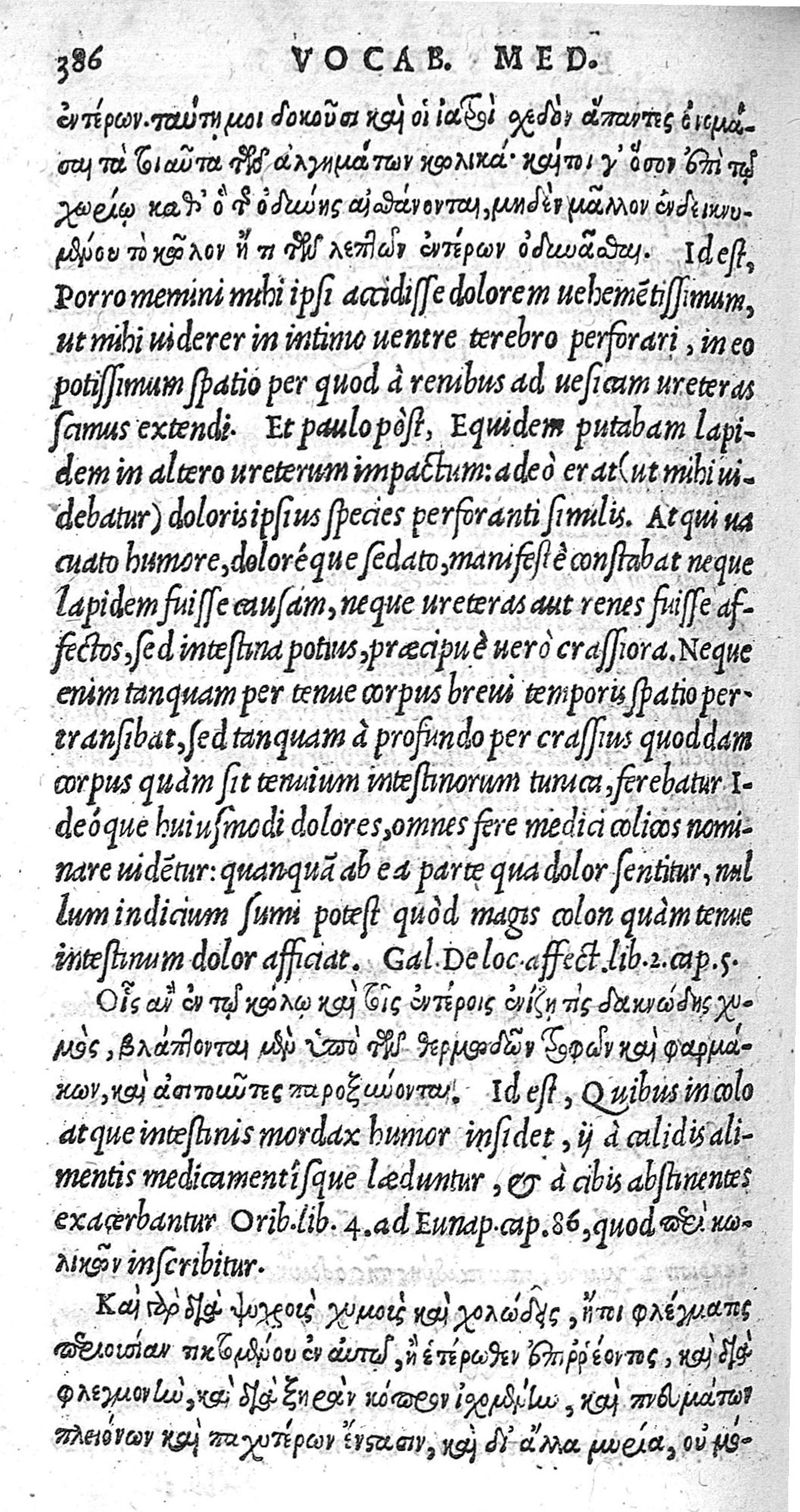 386 VOCAB. MED.
ἐντέρων. ταύτῃ μοι δοκοῦσι καὶ οἱ ἰατροὶ σχεδὸν ἅπαντες ὀνομά-
σαι τὰ τοιαῦτα τῶν ἀλγημάτων κωλικά· καίτοι γ' ὅσον ἐπὶ τῷ
χωρίῳ καθ' ὃ τῆς ὀδύνης αἰσθάνονται, μηδὲν μᾶλλον ἐνδεικνυ-
μένου τὸ κῶλον ἤ τι τῶν λεπτῶν ἐντέρων ὀδυνᾶσθαι. Id est,
Porro memini mihi ipsi accidisse dolorem uehemẽtissimum,
ut mihi uiderer in intimo uentre terebro perforari, in eo
potissimum spatio per quod à renibus ad uesicam ureteras
scimus extendi. Et paulo pòst, Equidem putabam lapi-
dem in altero ureterum impactum: adeò erat (ut mihi ui-
debatur) doloris ipsius species perforanti similis. At qui ua
cuato humore, doloréque sedato, manifestè constabat neque
lapidem fuisse causam, neque ureteras aut renes fuisse af-
fectos, sed intestina potius, præcipuè uerò crassiora. Neque
enim tanquam per tenue corpus breui temporis spatio per-
transibat, sed tanquam à profundo per crassius quoddam
corpus quàm sit tenuium intestinorum tunica, ferebatur I-
deóque huiusmodi dolores, omnes fere medici colicos nomi-
nare uidẽtur: quanquã ab ea parte qua dolor sentitur, nul
lum indicium sumi potest quòd magis colon quàm tenue
intestinum dolor afficiat. Gal. De loc. affect. lib. 2. cap. 5.
Οἷς ἂν ἐν τῷ κώλῳ καὶ τοῖς ἐντέροις ἐνίζῃ τὶς δακνώδης χυ-
μὸς, βλάπτονται μὲν ὑπὸ τῶν θερμωδῶν τροφῶν καὶ φαρμά-
κων, καὶ ἀσιτοῦντες παροξύνονται. Id est, Quibus in colo
atque intestinis mordax humor insidet, ij à calidis ali-
mentis medicamentísque læduntur, & à cibis abstinentes
exacerbantur Orib. lib. 4. ad Eunap. cap. 86, quod περὶ κω-
λικῶν inscribitur.
Καὶ γὰρ διὰ ψυχροὺς χυμοὺς καὶ χολώδεις, ἤτοι φλέγματος
περιουσίαν τικτομένου ἐν αὐτῷ, ἢ ἑτέρωθεν ἐπιῤῥέοντος, καὶ διὰ
φλεγμονὴν, καὶ διὰ ξηρὰν κόπρον ἰσχομένην, καὶ πνευμάτων
πλειόνων καὶ παχυτέρων ἔνστασιν, καὶ δι' ἄλλα μυρία, οὐ μό-